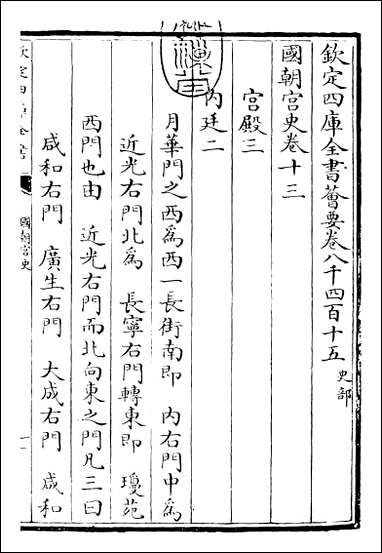 欽定四庫全書薈要卷八千四百十五 史部
國朝宫史卷十三
宫殿三
内廷二
月華門之西爲西一長街南即 内右門中爲
近光右門北爲 長寧右門轉東即 瓊苑
西門也由 近光右門而北向東之門凡三曰
咸和右門 廣生右門 大成右門 咸和
國朝宫史